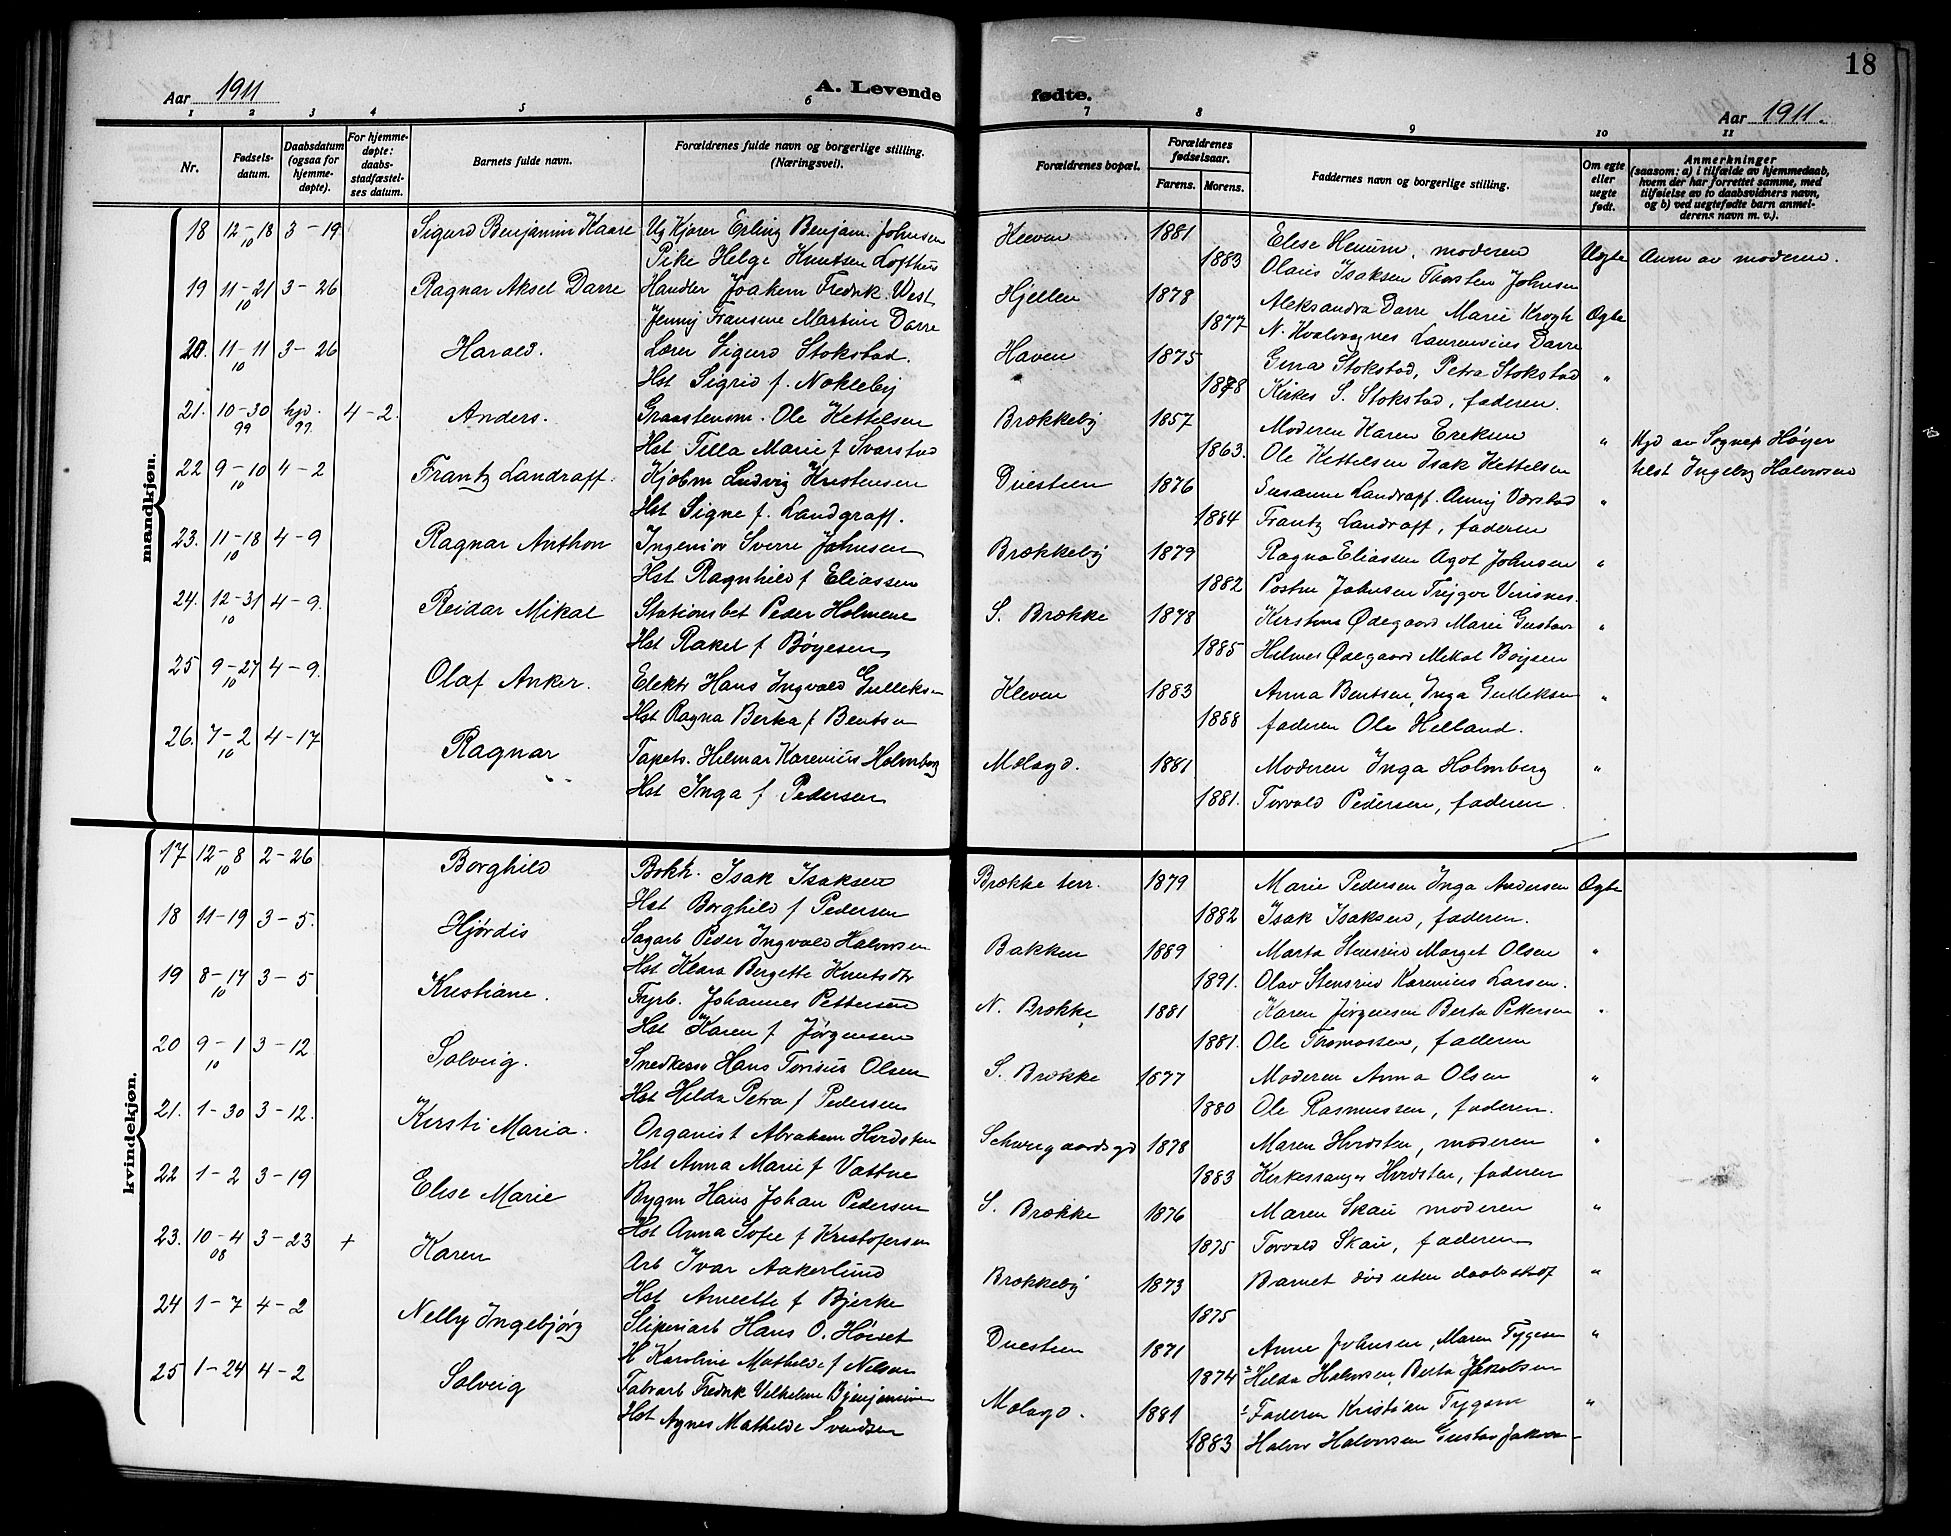 18
Aar 1911
A. Levende
fødte.
Aar 1911.
1 2 3 4 5 6 7 8 9 10 11
Nr.
Fødsels-
datum.
Daabsdatum
(ogsaa for
hjemme-
døpte).
For hjemme-
døpte:
daabs-
stadfæstel-
ses datum.
Barnets fulde navn.
Forældrenes fulde navn og borgerlige stilling.
(Næringsvei).
Forældrenes bopæl.
Forældrenes
fødselsaar.
Farens. Morens.
Faddernes navn og borgerlige stilling.
Om egte
eller
uegte
født.
Anmerkninger
(saasom: a) i tilfælde av hjemmedaab,
hvem der har forrettet samme, med
tilføielse av to daabsvidners navn,
og b) ved uegtefødte barn anmel-
derens navn m. v.).
mandkjøn.
18 12-18/10 3-19 Sigurd Benjamin Kaare Ug Kjører Erling Benjam. Johnsen Kleven 1881 Elise moderen Uegte Anm av moderen.
Pike Helga Knutsen Lofthus 1883 Olaus Isaksen Thorsten Johnsen
19 11-21/10 3-26 Ragnar Aksel Darre Handler Joakem Fredrik West Hjellen 1878 Aleksandra Darre Marie Krogh Egte
Jenny Fransine Martine Darre 1877 N. Kvalvaagnes Laurentius Darre
20. 11-11/10 3-26 Harald. Lærer Sigurd Stokstad. Haven 1875 Gina Stokstad, Petra Stokstad "
Hst Sigrid f. Nokleby 1878 Kirkes S. Stokstad, faderen.
21. 10-30/99 hjd. 99 4-2. Anders. Graastenom. Ole Kettelsen Brækkeby 1857 Moderen Karen Ereksen " Hjd av Sognep Høyer
Hst Tilla Marie f Svarstad 1863. Ole Kettelsen Isak Kettelsen tilst Ingebg Halvorsen
22 9-10/10 4-2 Frantz Landraff. Kjøbm Ludvig Kristensen Duesteen 1876 Susanne Landraff. Anny Værstad "
Hst Signe f. Landgraff. 1884 Frantz Landraff, faderen
23. 11-18/10 4-9 Ragnar Anthon Ingeniør Sverre Johnsen Brækkeby 1879 Ragna Eliassen Agot Johnsen "
Hst Ragnhild f Eliassen 1882 Postm Johnsen
24. 12-31/10 4-9. Reidar Mikal Stationsbet Peder Holmene S. Brække 1878 Kirstine Ødegaard Marie Gustav "
Hst Rakel f Bøyesen 1885 Hilmer Ødegaard Mikal Bøysen
25 9-27/10 4-9. Olaf Anker. Elektr Hans Ingvald Gulleksen Kleven 1883 Anna Bentsen, Inga Gulleksen "
Hst Ragna Berta f Bentsen 1888 faderen Ole Helland.
26. 7-2/10 4-17 Ragnar Tapets. Hilmar Karenius Holmberg Molagd. 1881 Moderen Inga Holmberg "
Hst Inga f Pedersen 1881. Torvald Pedersen, faderen.
kvindekjøn.
17 12-8/10 2-26 Borghild Bokh. Isak Isaksen Brække terr. 1879 Marie Pedersen Inga Andersen Egte
Hst Borghild f Pedersen 1882 Isak Isaksen, faderen.
18 11-19 3-5. Hjørdis Sagarb Peder Ingvald Halvorsen Bakken 1889 Marta Stensrud Marget Olsen "
Hst Klara Bergette Knutsdtr 1891. Olav Stensrud Karenius Larsen.
19 8-14/10 3-5 Kristiane. Fyrb. Johannes Pettersen N. Brække 1881 Karen Jørgensen Berta Pettersen "
Hst Karen f Jørgensen 1881. Ole Thomassen, faderen
20 9-1/10 3-12 Solveig. Snedkersv Hans Torisius Olsen S. Brække 1877 Moderen Anna Olsen "
Hst Hilda Petra f Pedersen 1880 Ole Rasmussen, faderen.
21. 1-30 3-12. Kirsti Maria. Organist Abraham Hvidsten Schweigaardsgd 1878 Maren Hvidsten, moderen "
Hst Anna Marie f Vattne 1883 Kirkesanger Hvidsten, faderen
22 1-2 3-19 Elise Marie Bygm Hans Johan Pedersen S. Brække 1876 Maren Skau moderen "
Hst Anna Sofie f Kristofersen 1875 Torvald Skau, faderen
23. 10-4/08 3-23 + Karen Arb Ivar Aakerlund Brækkeby 1873 Barnet død uten daabsstadf "
Hst Anette f Bjerke 1875
24 1-7 4-2 Nelly Ingebjørg Sliperiarb Hans O. Høiset Duesteen 1871 Anne Johnsen, Maren Tygesen "
H Karoline Mathilde f Nilsen 1874 Hilda Halvorsen, Berta Jakobsen
25 1-24 4-2 Solveig Fabrarb Fredrik Velhelm Molagd. 1881 Faderen Kristian Tygesen "
Hst Agnes Mathilde Svendsen 1883 Halvor Halvorsen Gustav Jakobsen